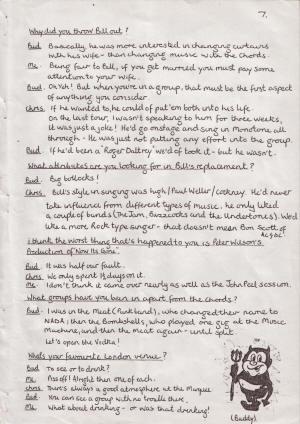 7.
Why did you throw Bill out?
Bud. Basically, he was more interested in changing curtains
with his wife - than changing music with the Chords.
Me. Being fair to Bill, if you get married you must pay some
attention to your wife.
Bud. Oh Yeh! But when you're in a group, that must be the first aspect
of anything you consider.
Chris. If he wanted to, he could of put 'em both into his life.
On the last tour, I wasn't speaking to him for three weeks,
it was just a joke! He'd go onstage and sing in monotone all
through - He was just not putting any effort into the group.
Bud. If he'd been a 'Roger Daltrey' we'd of took it - but he wasn't.
What attributes are you looking for in Bill's replacement?
Bud. Big bollocks!
Chris. Bill's style in singing was high/Paul Weller/Cockney. He'd never
take influence from different types of music. he only liked
a couple of bands (The Jam, Buzzcocks and the Undertones). We'd
like a more Rock type singer - that doesn't mean Bon Scott of
AC/DC
I think the worst thing that's happened to you is Peter Wilson's
Production of 'Now Its Gone'.
Bud. It was half our fault.
Chris. We only spent 1½ days on it.
Me. I don't think it came over nearly as well as the John Peel session.
What groups have you been in apart from the Chords?
Bud. I was in the Meat (Punk band), who changed their name to
NADA; then the Bombshells, who played one gig at the Music
Machine, and then the meat again - until split.
Let's open the Vodka!
What's your favourite London venue?
Bud. To see or to drink?
Me. Piss off! Alright then one of each.
Chris. There's always a good atmosphere at the Marquee
Bud. You can see a group with no trouble there.
Me. What about drinking - or was that drinking!
(Buddy)